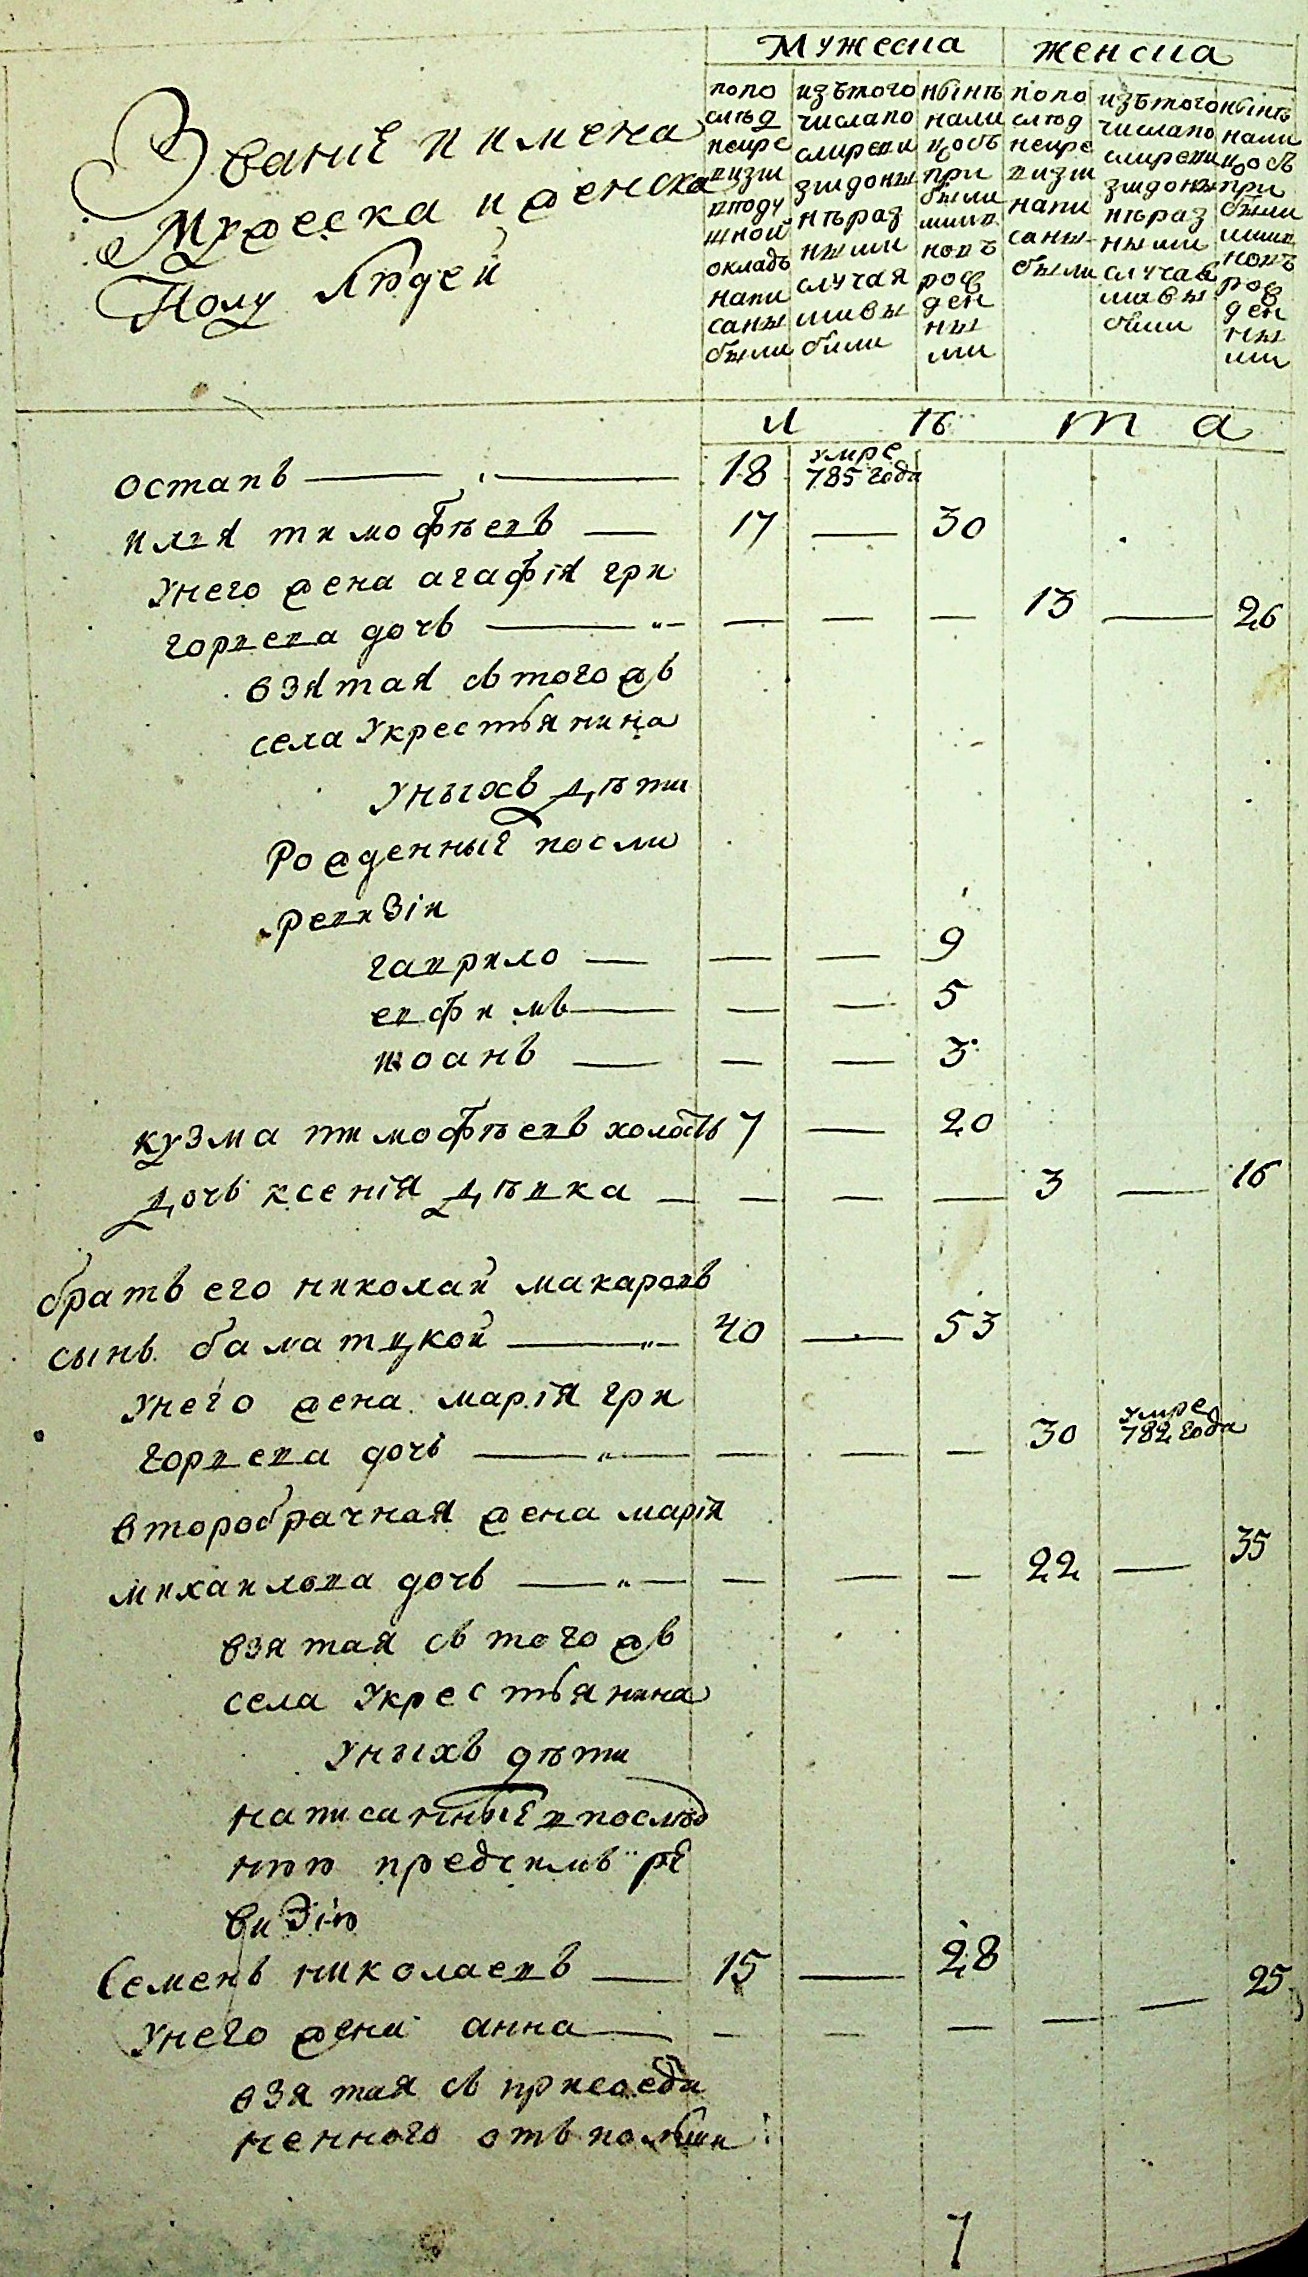 Мужеска женска
Звание и имена
Мужеска и женска
Полу людей
по по след ней ре визии в поду шной окладъ напи саны были
изъ того числа по сли ревизи и до ны не раз ными случая ми вы были
ныне на ли цо съ при былы ми и вновъ рож ден ны ми
по по след ней ре визи и напи саны были
изъ того числа по сли ревизи и до ны не раз ными случая ми вы были
ныне на ли цо съ при былы ми и вновъ рож ден ны ми
л ѣ т а
остапъ 18 умре 785 года
илия тимофѣевъ 17 — 30
Унего жена агафія гри
горьева дочъ — — — 13 — 26
взятая съ тогожъ
села Укрестьянина
Уныхъ дѣти
Рожденные посли
ревизіи
гаврило — — 9
ефимъ — — 5
иоанъ — — 3
кузма тимофѣевъ холостъ 7 — 20
дочъ ксенія дѣвка — — — — 3 — 16
братъ его николай макаровъ
сынъ баматцкой 40 — 53
Унего жена марія гри
горьева дочъ — — — 30 умре 782 года
второбрачная жена марія
михайлова дочъ — — — 22 — 35
взятая съ тогожъ
села Укрестьянина
Уныхъ дѣти
написанные в послѣд
нюю предсимъ ре
визію
Семенъ николаевъ 15 — 28
Унего жена анна — — — — — 25
взятая съ присоеди
ненного отъ полши
7